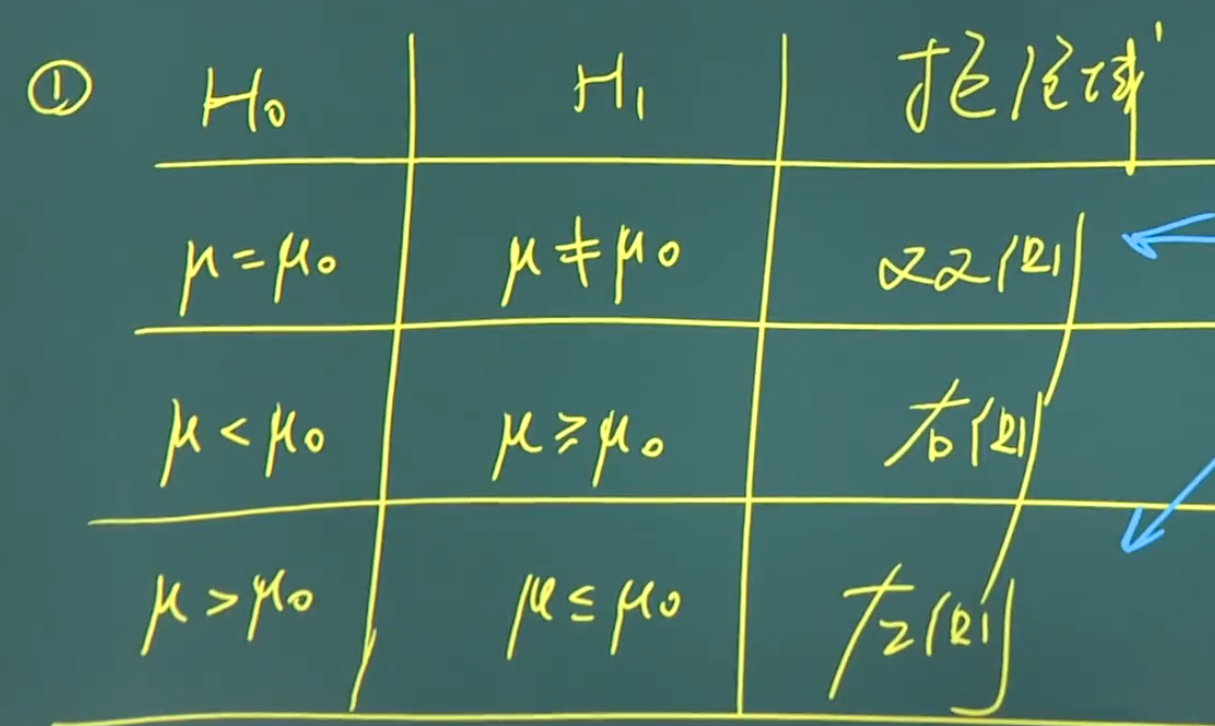 ① H₀ H₁ 拒绝域
μ=μ₀ μ≠μ₀ 双侧
μ<μ₀ μ≥μ₀ 右侧
μ>μ₀ μ≤μ₀ 左侧